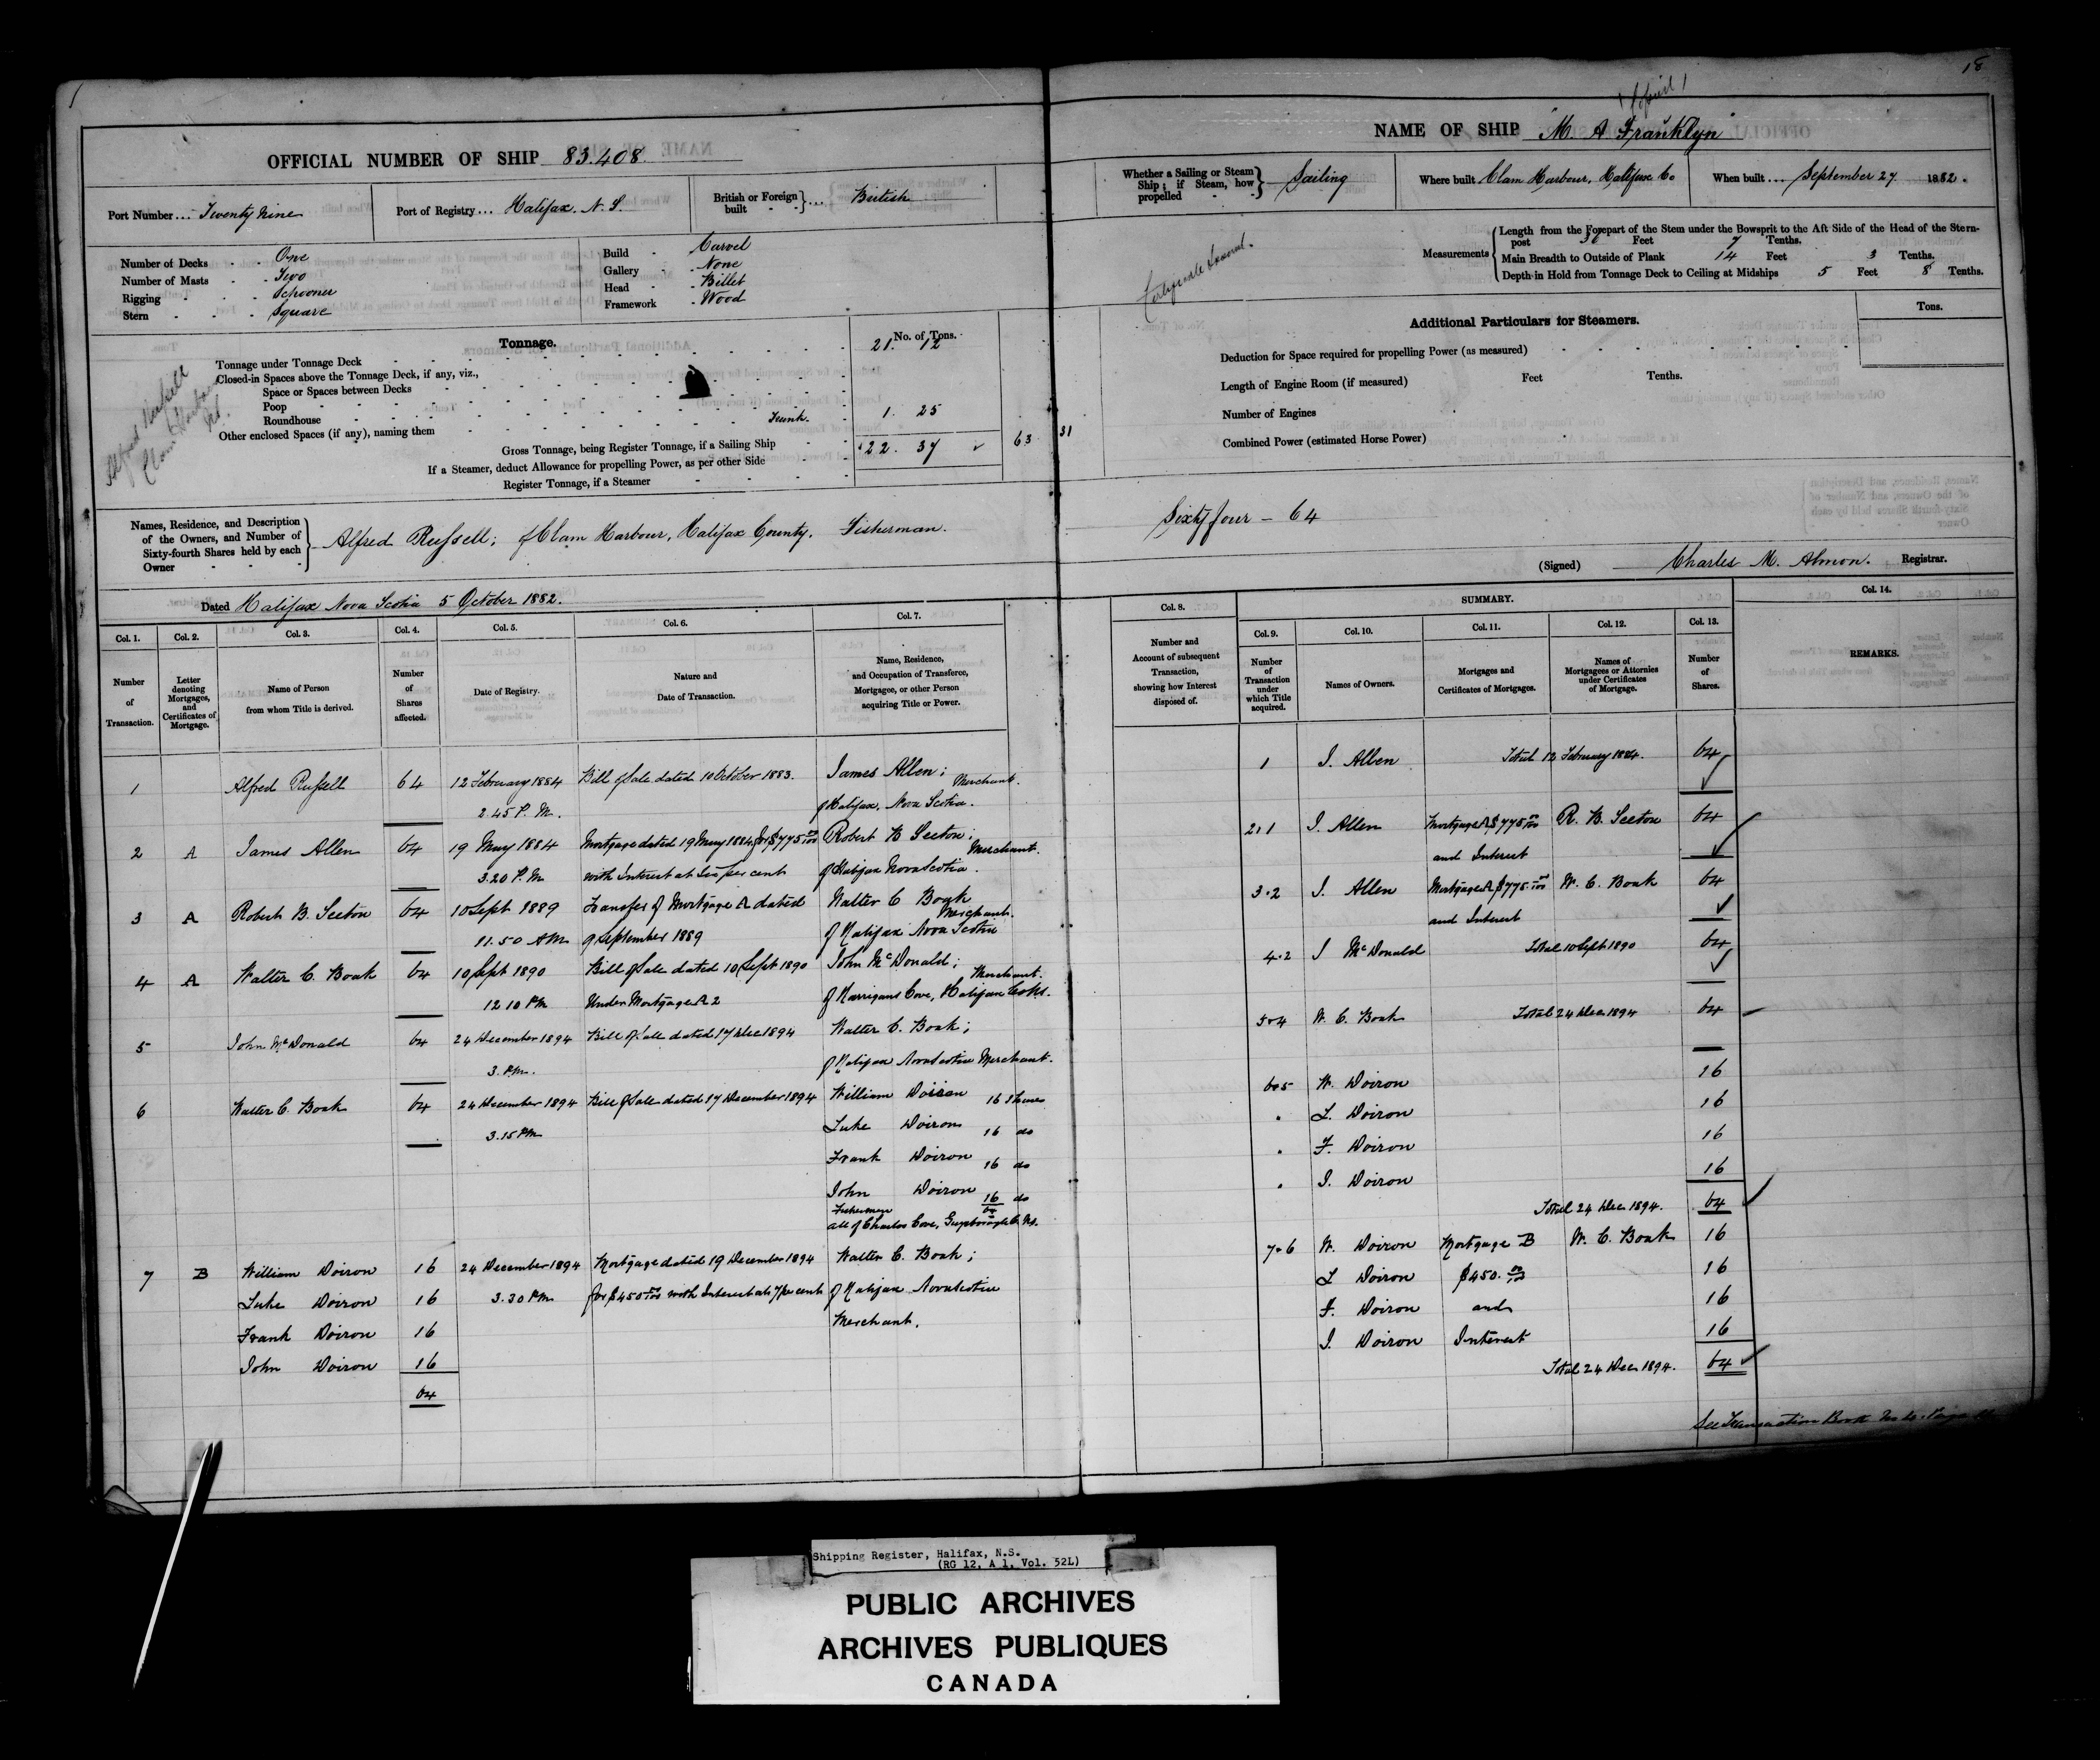 18
OFFICIAL NUMBER OF SHIP 83.408
Port Number ... Twenty Nine
Port of Registry ... Halifax. N. S.
British or Foreign built } ... British
Number of Decks - - One
Number of Masts - - Two
Rigging - - - Schooner
Stern - - - Square
Build - Carvel
Gallery - None
Head - Billet
Framework - Wood
Tonnage.
No. of Tons.
Tonnage under Tonnage Deck 21. 12
Closed-in Spaces above the Tonnage Deck, if any, viz.,
Space or Spaces between Decks
Poop
Roundhouse
Other enclosed Spaces (if any), naming them Trunk. 1. 25
Gross Tonnage, being Register Tonnage, if a Sailing Ship 22. 37 63 31
If a Steamer, deduct Allowance for propelling Power, as per other Side
Register Tonnage, if a Steamer
Alfred Russell
Clam Harbour
NS.
Names, Residence, and Description of the Owners, and Number of Sixty-fourth Shares held by each Owner } Alfred Russell; of Clam Harbour, Halifax County. Fisherman.
Dated Halifax Nova Scotia 5 October 1882.
NAME OF SHIP "M. A. Franklyn"
Whether a Sailing or Steam Ship; if Steam, how propelled } Sailing
Where built Clam Harbour, Halifax Co
When built ... September 27 1882.
Measurements
Length from the Forepart of the Stem under the Bowsprit to the Aft Side of the Head of the Stern-
post Feet 7 Tenths.
Main Breadth to Outside of Plank 14 Feet 3 Tenths.
Depth in Hold from Tonnage Deck to Ceiling at Midships 5 Feet 8 Tenths.
Certificate
Additional Particulars for Steamers.
Tons.
Deduction for Space required for propelling Power (as measured)
Length of Engine Room (if measured) Feet Tenths.
Number of Engines
Combined Power (estimated Horse Power)
Sixty four - 64
(Signed) Charles M. Almon. Registrar.
Col. 1. Number of Transaction.
Col. 2. Letter denoting Mortgages, and Certificates of Mortgage.
Col. 3. Name of Person from whom Title is derived.
Col. 4. Number of Shares affected.
Col. 5. Date of Registry.
Col. 6. Nature and Date of Transaction.
Col. 7. Name, Residence, and Occupation of Transferee, Mortgagee, or other Person acquiring Title or Power.
1 Alfred Russell 64 12 February 1884 Bill of Sale dated 10 October 1883. James Allen; Merchant.
2.45 P. M. of Halifax, Nova Scotia.
2 A James Allen 64 19 May 1884 Mortgage dated 19 May 1884 for $775 00/100 Robert B Seeton; Merchant.
3.20 P. M. with Interest at Six per cent of Halifax Nova Scotia.
3 A Robert B. Seeton 64 10 Sept 1889 Transfer of Mortgage A dated Walter C Boak Merchant.
11.50 AM 9 September 1889 of Halifax Nova Scotia
4 A Walter C. Boak 64 10 Sept 1890 Bill of Sale dated 10 Sept 1890 John McDonald; Merchant.
12 10 PM Under Mortgage A 2 of Harrigans Cove, Halifax Co NS.
5 John McDonald 64 24 December 1894 Bill of Sale dated 17 Dec 1894 Walter C. Boak;
3. P.M. of Halifax Nova Scotia Merchant.
6 Walter C. Boak 64 24 December 1894 Bill of Sale dated 17 December 1894 William Doiron 16 Shares
3.15 PM Luke Doiron 16 do
Frank Doiron 16 do
John Doiron 16 do
Fishermen 64
all of Charlos Cove, Guysborough Co. NS.
7 B William Doiron 16 24 December 1894 Mortgage dated 19 December 1894 Walter C. Boak;
Luke Doiron 16 3.30 PM for $450 00/100 with Interest at 7 per cent of Halifax Nova Scotia
Frank Doiron 16 Merchant.
John Doiron 16
64
Col. 8. Number and Account of subsequent Transaction, showing how Interest disposed of.
SUMMARY.
Col. 9. Number of Transaction under which Title acquired.
Col. 10. Names of Owners.
Col. 11. Mortgages and Certificates of Mortgages.
Col. 12. Names of Mortgagees or Attornies under Certificates of Mortgage.
Col. 13. Number of Shares.
Col. 14. REMARKS.
1 J. Allen Total 12 February 1884. 64
2.1 J. Allen Mortgage A $775 00/100 R. B. Seeton 64
and Interest
3.2 J. Allen Mortgage A $775 00/100 W. C. Boak 64
and Interest
4.2 J McDonald Total 10 Sept 1890 64
5.4 W. C. Boak Total 24 Dec 1894 64
6.5 W. Doiron 16
" L. Doiron 16
" F. Doiron 16
" J. Doiron 16
Total 24 Dec 1894. 64
7.6 W. Doiron Mortgage B W. C. Boak 16
L Doiron $450. 00/100 16
F. Doiron and 16
J. Doiron Interest 16
Total 24 Dec 1894. 64
See Transaction Book
Shipping Register, Halifax, N.S.
(RG 12, A 1, Vol. 52L)
PUBLIC ARCHIVES
ARCHIVES PUBLIQUES
CANADA